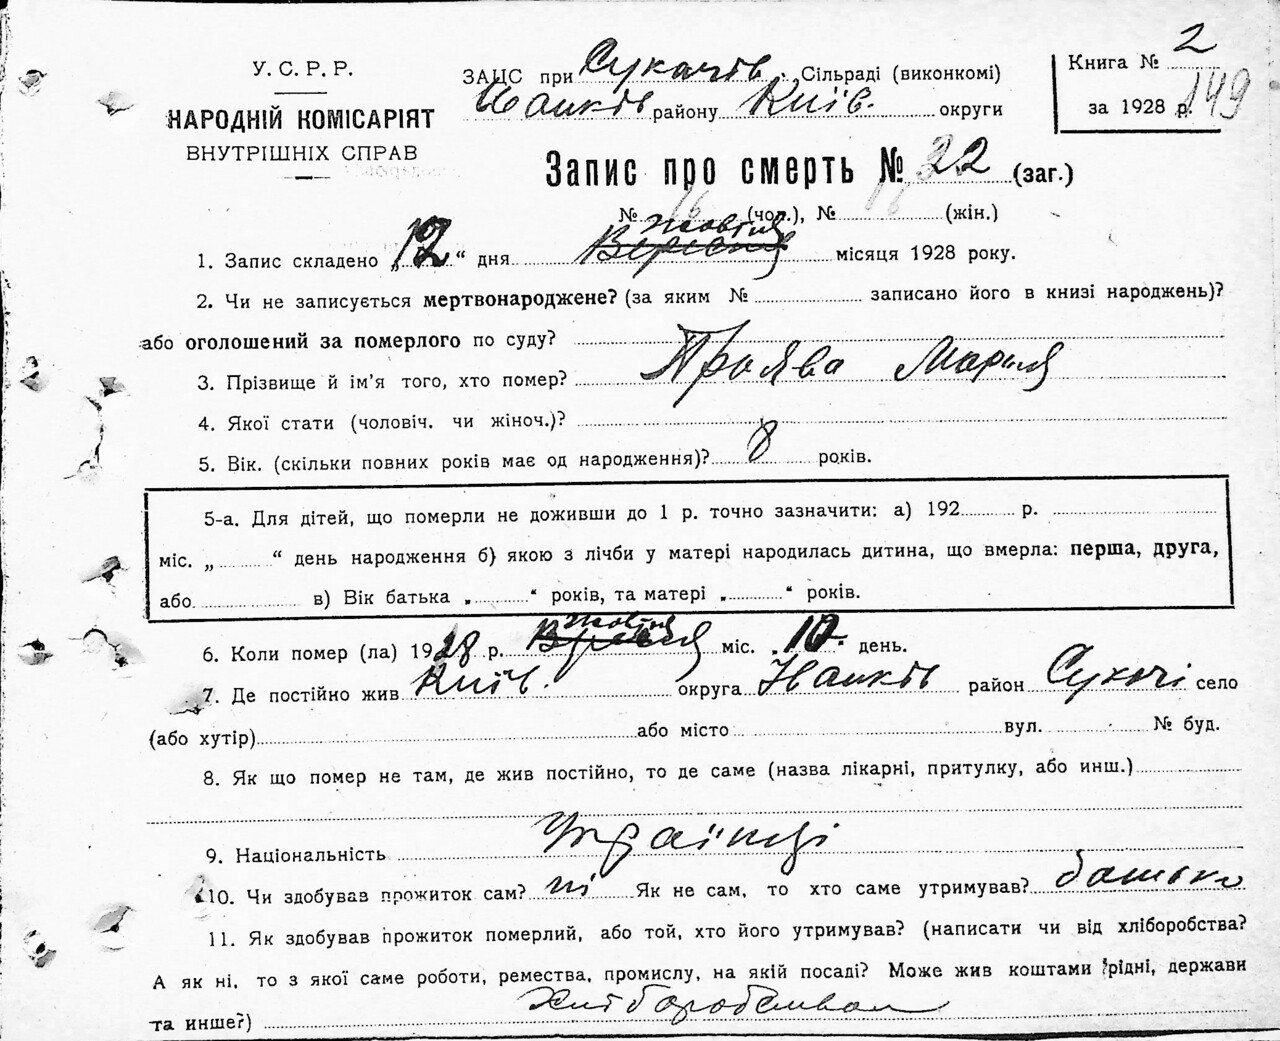 У. С. Р. Р.
НАРОДНІЙ КОМІСАРІЯТ
ВНУТРІШНІХ СПРАВ
ЗАЦС при Сукачів. Сільраді (виконкомі)
Іванків району Київ. округи
Книга № 2
за 1928 р. 149
Запис про смерть № 32 (заг.)
№ 16 (чол.), № 16 (жін.)
Жовтня
1. Запис складено „12“ дня Вересня місяця 1928 року.
2. Чи не записується мертвонароджене? (за яким № записано його в книзі народжень)?
або оголошений за померлого по суду?
3. Прізвище й ім'я того, хто помер? Проява Мария
4. Якої стати (чоловіч. чи жіноч.)?
5. Вік. (скільки повних років має од народження)? 8 років.
5-а. Для дітей, що померли не доживши до 1 р. точно зазначити: а) 192 р.
міс. „ “ день народження б) якою з лічби у матері народилась дитина, що вмерла: перша, друга,
або в) Вік батька „ “ років, та матері „ “ років.
Жовтня
6. Коли помер (ла) 1928 р. Вересня міс. „10“ день.
7. Де постійно жив Київ. округа Іванків район Сукачі село
(або хутір) або місто вул. № буд.
8. Як що помер не там, де жив постійно, то де саме (назва лікарні, притулку, або инш.)
9. Національність Українці
10. Чи здобував прожиток сам? ні Як не сам, то хто саме утримував? батько
11. Як здобував прожиток померлий, або той, хто його утримував? (написати чи від хліборобства?
А як ні, то з якої саме роботи, ремества, промислу, на якій посаді? Може жив коштами рідні, держави
та инше?) Хліборобством